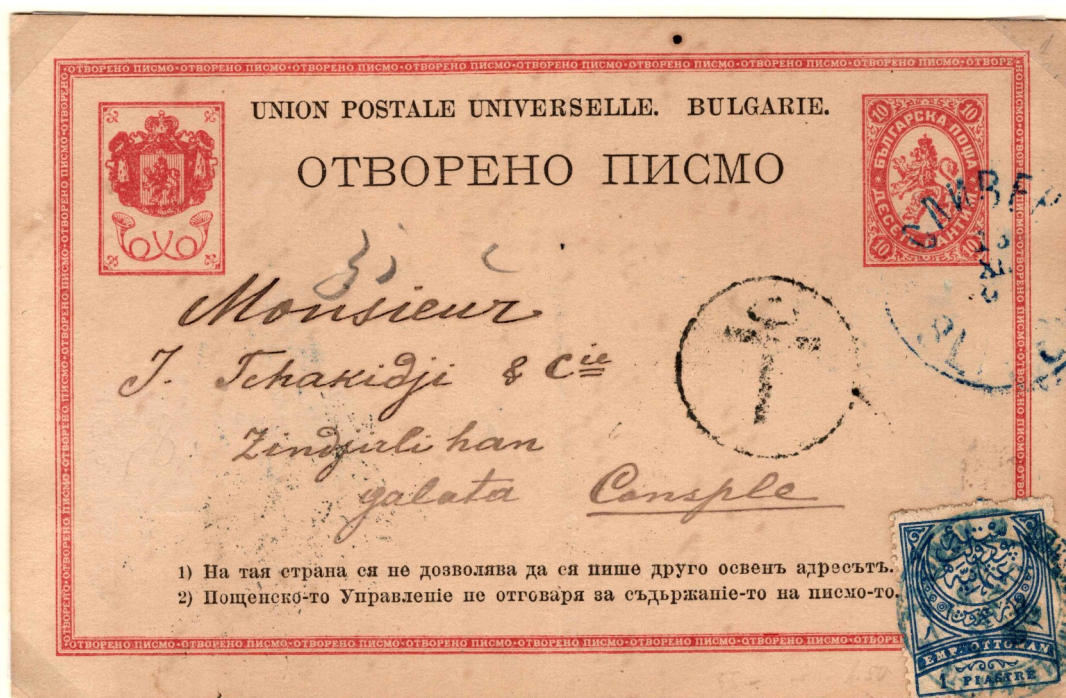 ОТВОРЕНО ПИСМО·ОТВОРЕНО ПИСМО·ОТВОРЕНО ПИСМО·ОТВОРЕНО ПИСМО·ОТВОРЕНО ПИСМО·ОТВОРЕНО ПИСМО·ОТВОРЕНО ПИСМО·ОТВОРЕНО
UNION POSTALE UNIVERSELLE. BULGARIE.
ОТВОРЕНО ПИСМО
10 10
БЪЛГАРСКА ПОЩА
ДЕСЕТ САНТИМ
10 10
СЛИВЕН
T
Monsieur
J. Tchakidji & Cie
Zindjirli han
galata Consple
1) На тая страна ся не дозволява да ся пише друго освенъ адресътъ.
2) Пощенско-то Управленіе не отговаря за съдържаніе-то на писмо-то.
EMP. OTTOMAN
1 PIASTRE